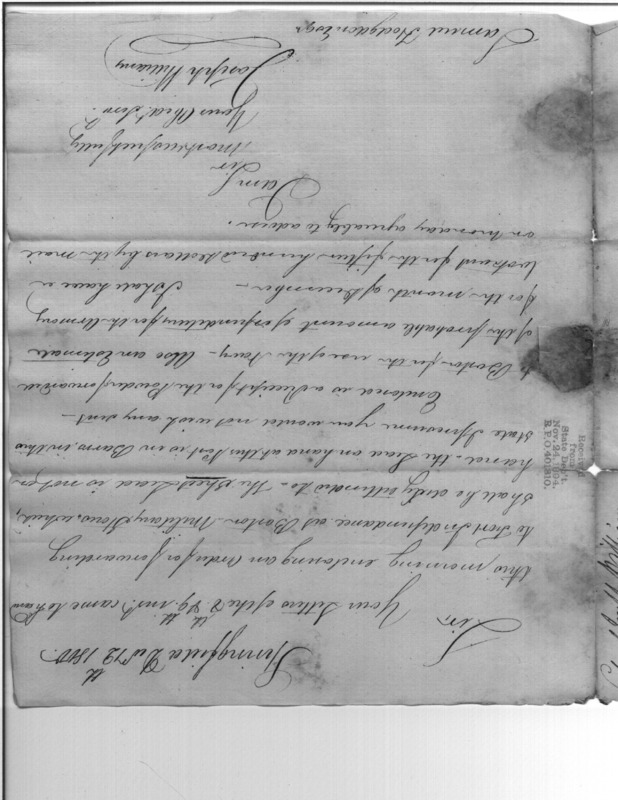 Springfield Decr 12th 1800.
Sir,
Your Letters of the 8th & 9th inst. came to hand
this morning enclosing an Order for forwarding
to Fort Independance at Boston Military Stores, which,
shall be duly attended to. The Sheet Lead is not on
hand - the Lead on hand at this Post, is in Barrs, in this
state I presume you would not wish any sent -
Enclosed is a Receipt for the Powder forwarded
to Boston for the use of the Navy - Also an Estimate
of the probable amount of expenditures for the Armory
for the month of December - I shall have a
for the fifteen hundred Dollars by the mail
on Monday agreeably to advice.
I am
Sir
most respectfully
Yours Obedt. Servt.
Joseph Williams
Samuel Hodgdon Esqr
Received
from
State Dep't.
Nov. 24, 1894.
R.P.O 401310.